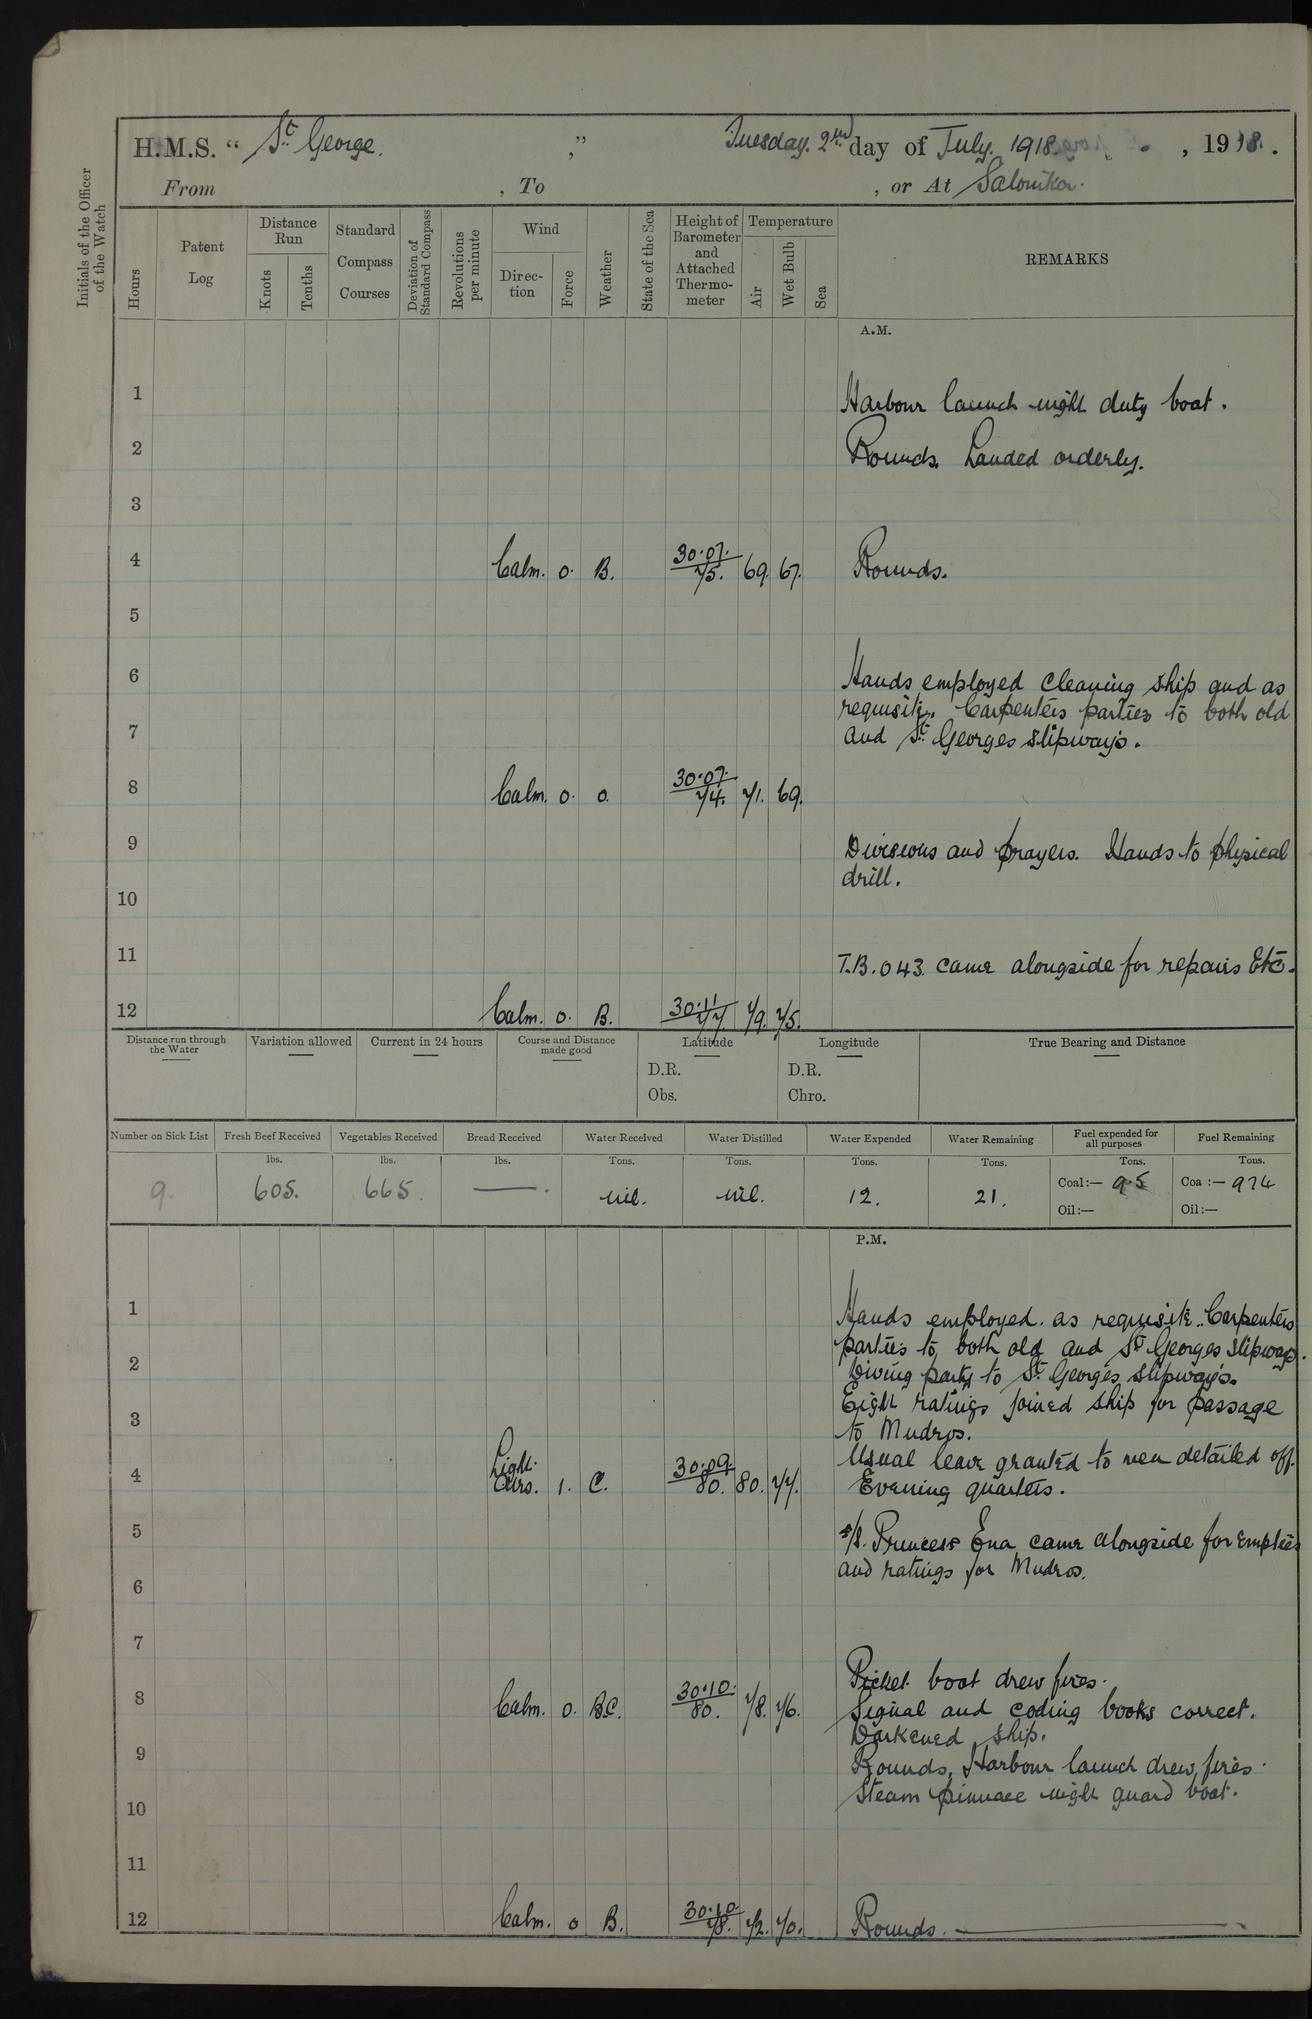 H.M.S. “ St George. ,” Tuesday. 2nd day of July. 1918 , 1918.
From , To , or At Salonika.
Initials of the Officer of the Watch
Hours
Patent Log
Distance Run
Knots
Tenths
Standard Compass Courses
Deviation of Standard Compass
Revolutions per minute
Wind
Direc-tion
Force
Weather
State of the Sea
Height of Barometer and Attached Thermo-meter
Temperature
Air
Wet Bulb
Sea
REMARKS
A.M.
1 Harbour launch night duty boat.
2 Rounds. Landed orderly.
3
4 Calm. 0. B. 30.07. 75. 69. 67. Rounds.
5
6 Hands employed cleaning ship and as
requisite. Carpenters parties to both old
7 and St Georges slipways.
8 Calm. 0. 0. 30.07. 74. 71. 69.
9 Divisions and prayers. Hands to physical
drill.
10
11 T.B. 043 came alongside for repairs Etc.
12 Calm. 0. B. 30.11 77. 79. 75.
Distance run through the Water
Variation allowed
Current in 24 hours
Course and Distance made good
Latitude
D.R.
Obs.
Longitude
D.R.
Chro.
True Bearing and Distance
Number on Sick List 9.
Fresh Beef Received lbs. 605.
Vegetables Received lbs. 665.
Bread Received lbs. —.
Water Received Tons. nil.
Water Distilled Tons. nil.
Water Expended Tons. 12.
Water Remaining Tons. 21.
Fuel expended for all purposes Tons. Coal:— 9.5 Oil:—
Fuel Remaining Tons. Coa :— 974 Oil:—
P.M.
1 Hands employed as requisite. Carpenters
parties to both old and St Georges slipways.
2 Diving party to St Georges slipways.
Eight ratings joined ship for passage
3 to Mudros.
Usual leave granted to men detailed off.
4 Light airs. 1. C. 30.09. 80. 80. 77. Evening quarters.
5 s/s. Princess Ena came alongside for empties
and ratings for Mudros.
6
7
Picket boat drew fires.
8 Calm. 0. B.C. 30.10. 80. 78. 76. Signal and coding books correct.
Darkened ship.
9 Rounds, Harbour launch drew fires.
Steam pinnace night guard boat.
10
11
12 Calm. 0 B. 30.10. 78. 72. 70. Rounds.